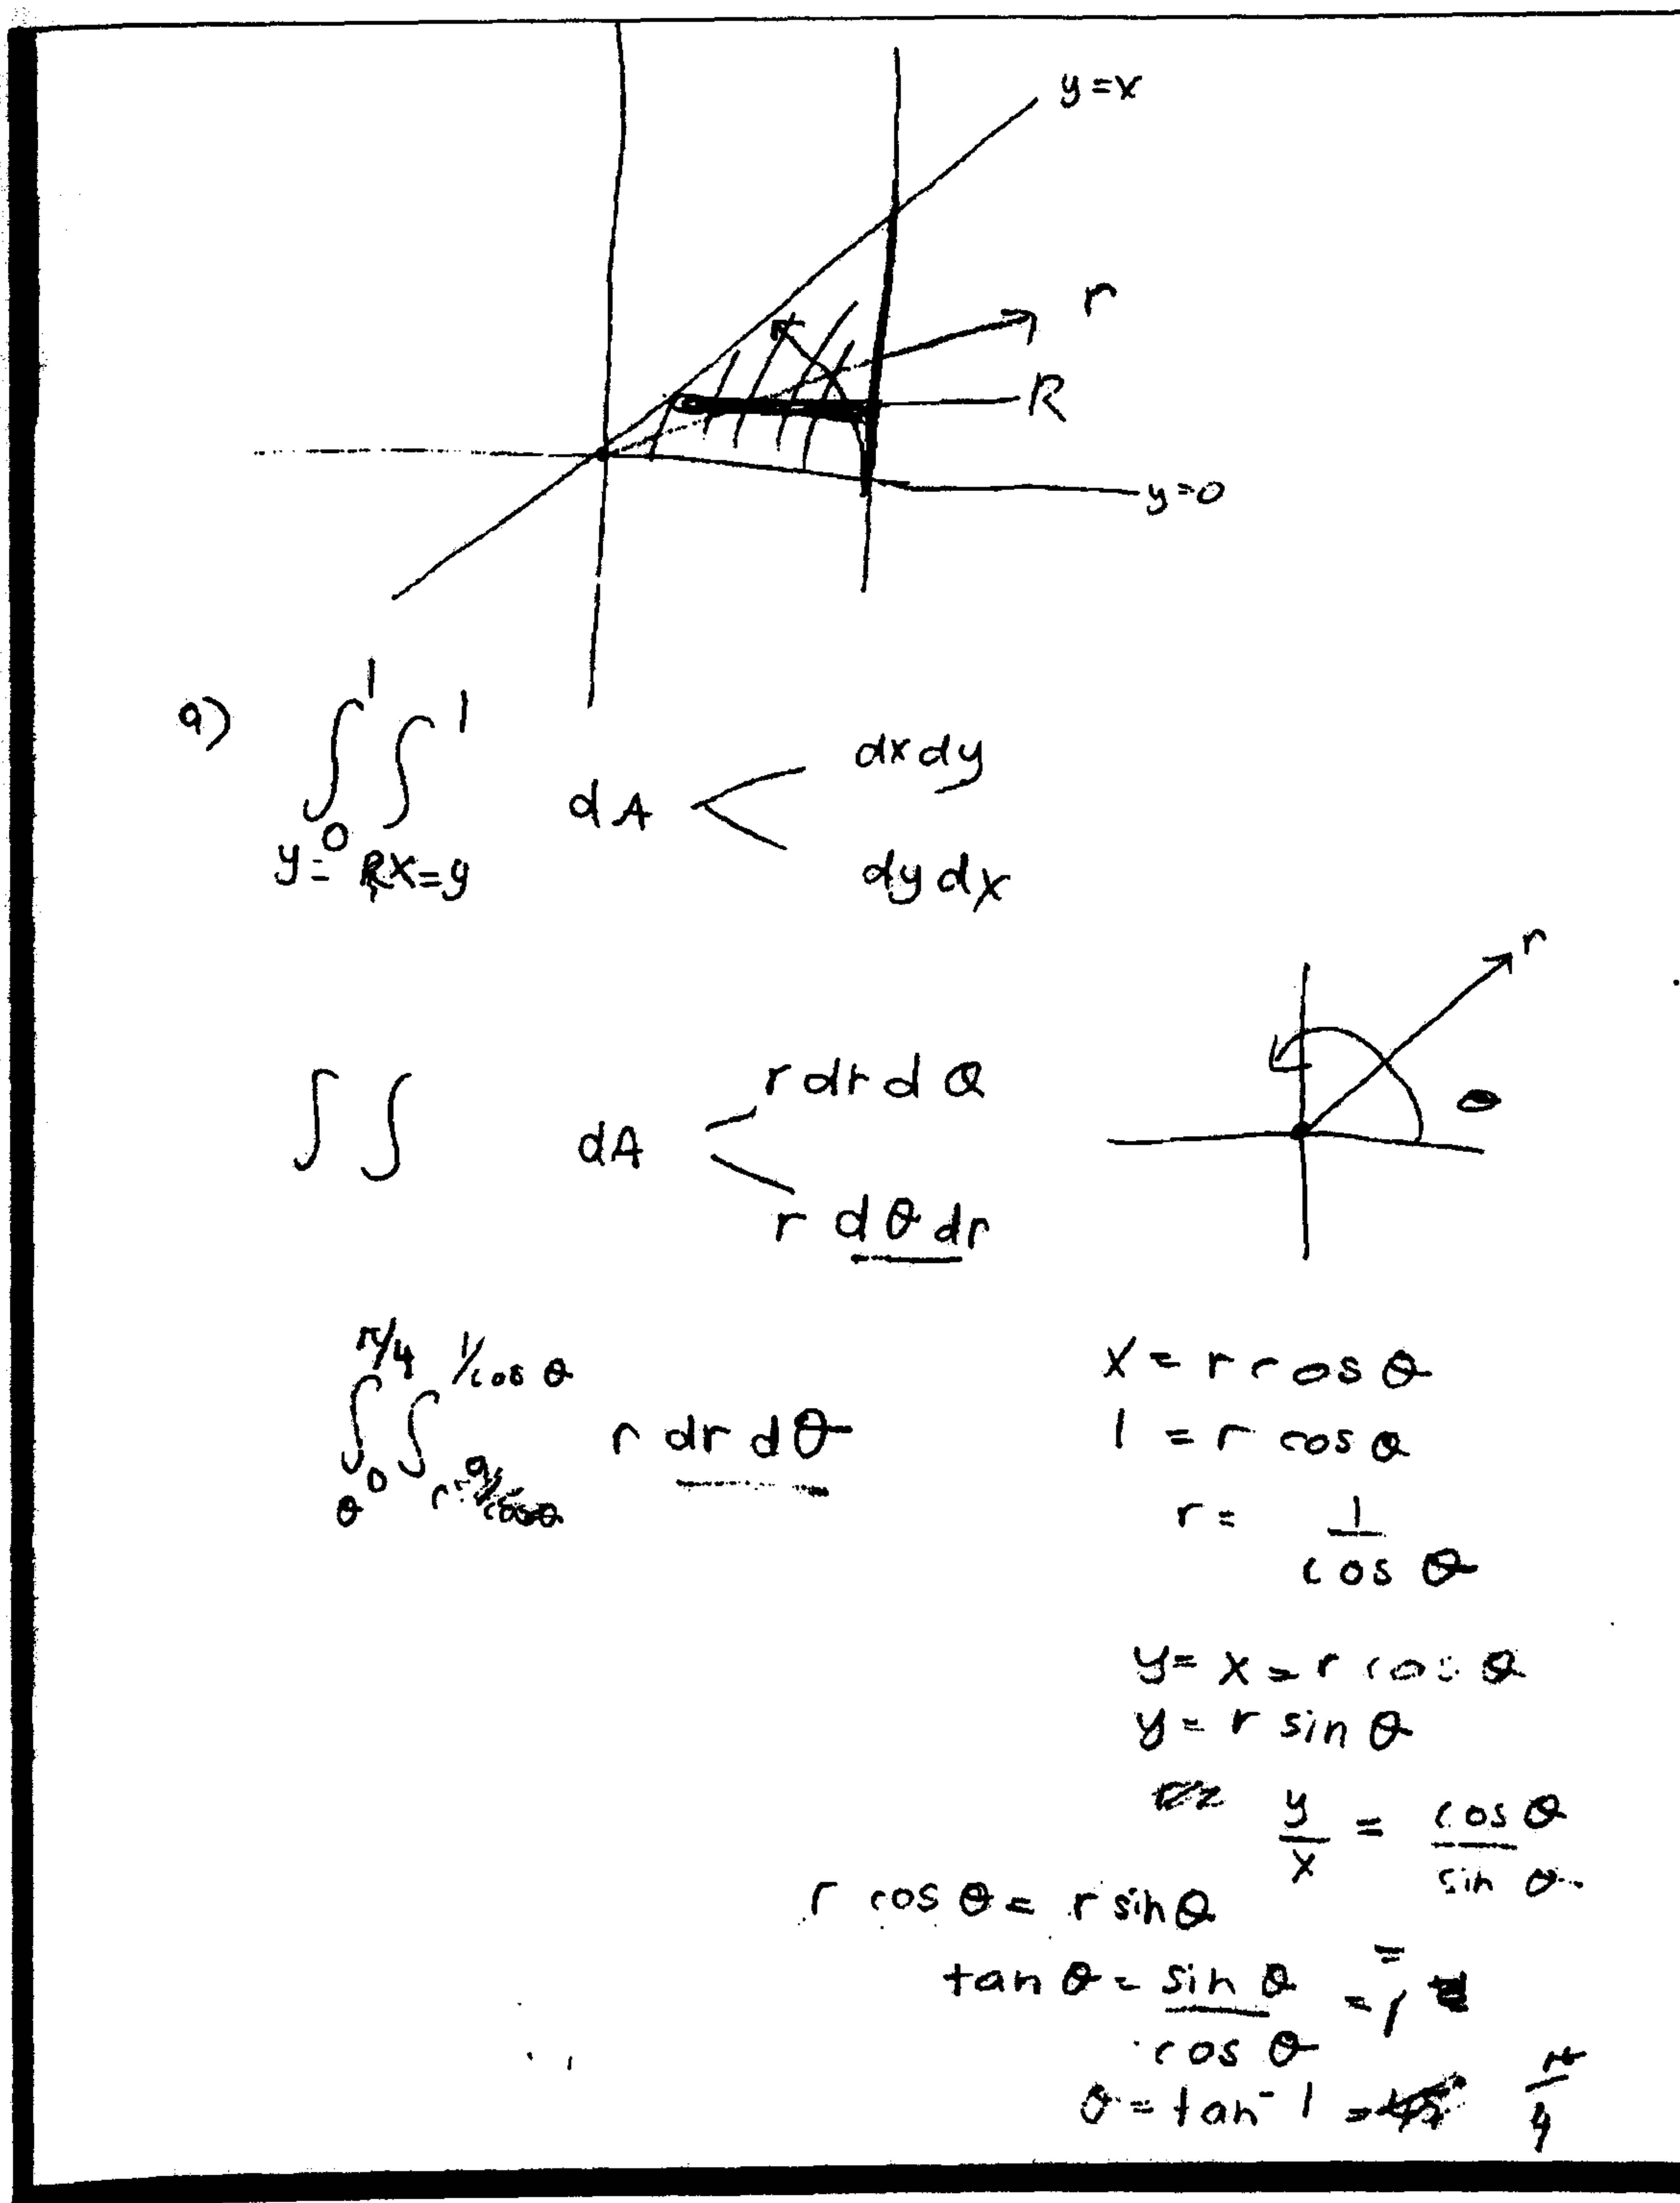 y=x
r
R
y=0
a) ∫₀¹ ∫¹ dA < dx dy
dy dx
y= R x=y
r
θ
∫∫ dA < r dr dθ
r dθ dr
∫₀^(π/4) ∫^(1/cos θ) r dr dθ
θ r=
x = r cos θ
1 = r cos θ
r = 1/cos θ
y = x = r cos θ
y = r sin θ
y/x = cos θ/sin θ
r cos θ = r sin θ
tan θ = sin θ/cos θ = 1
θ = tan⁻ 1 = π/4